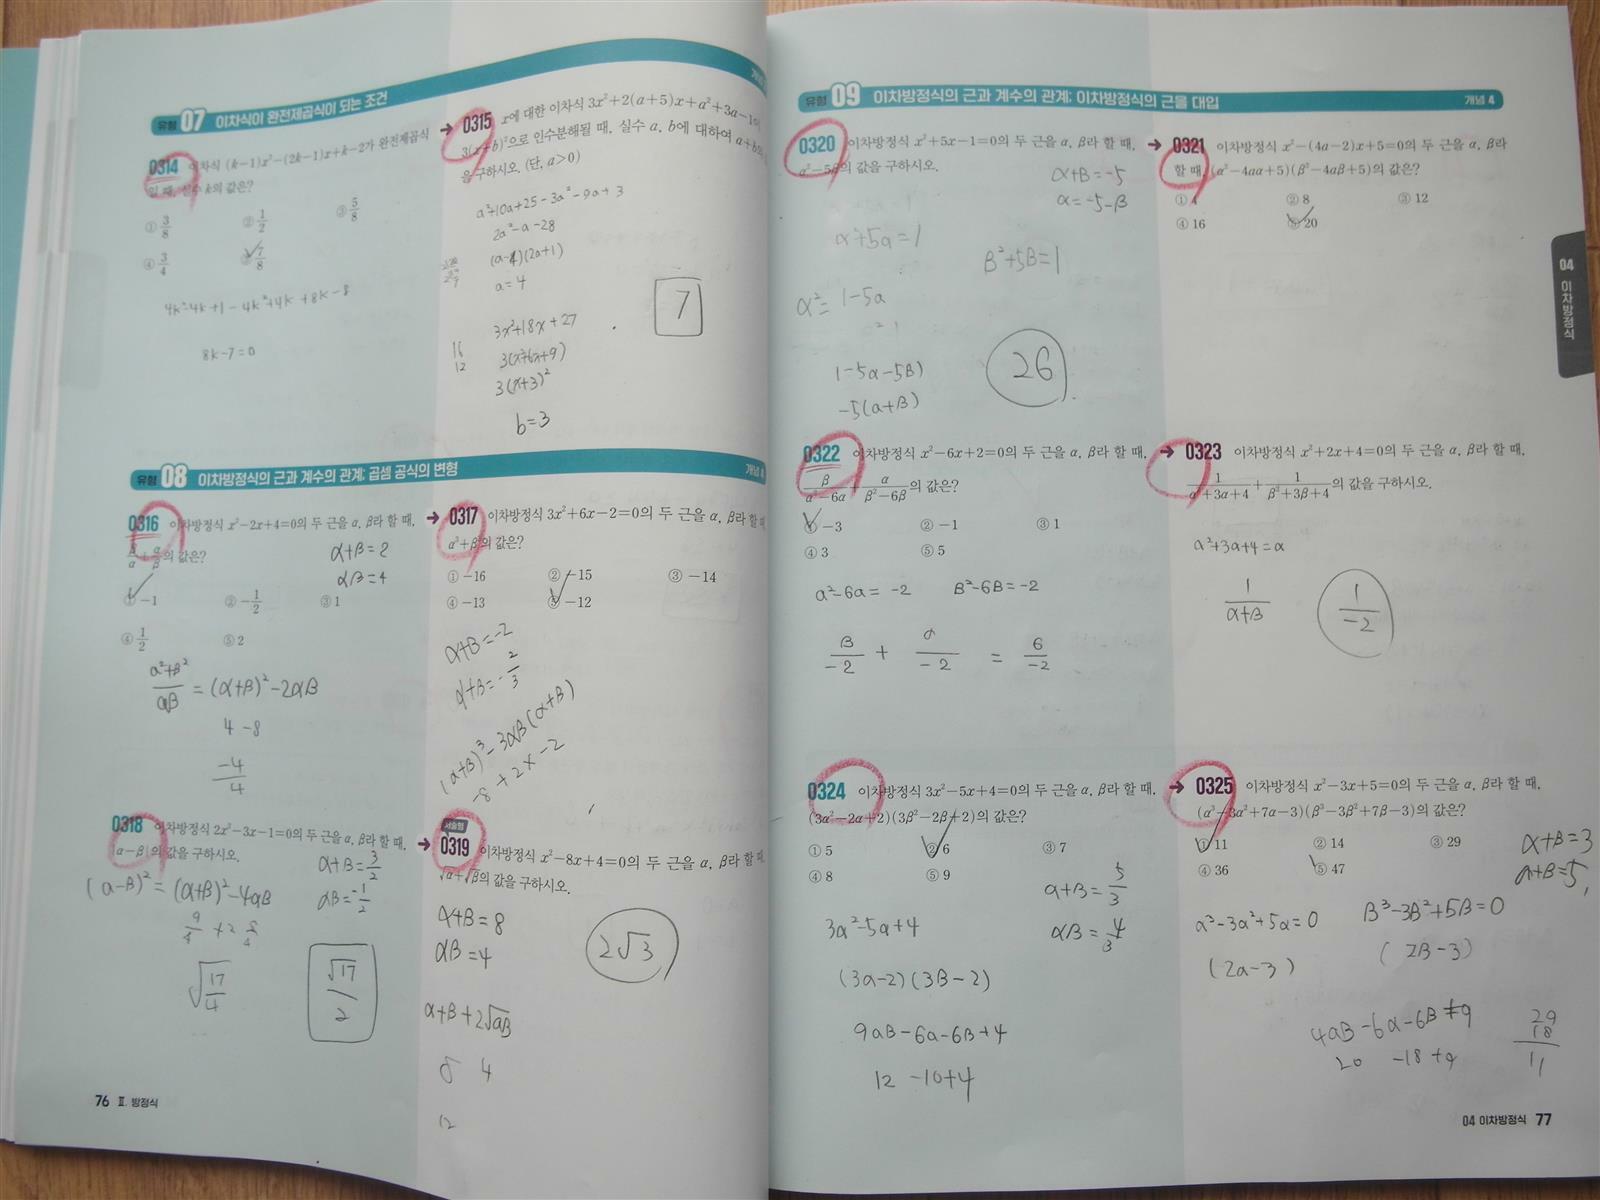 유형 07 이차식이 완전제곱식이 되는 조건
0314 이차식 (k-1)x²-(2k-1)x+k-2가 완전제곱식
일 때, 실수 k의 값은?
① 3/8 ② 1/2 ③ 5/8
④ 3/4 ⑤ 7/8
4k²-4k+1-4k²+4k+8k-8
8k-7=0
→ 0315 x에 대한 이차식 3x²+2(a+5)x+a²+3a-1이
3(x+b)²으로 인수분해될 때, 실수 a, b에 대하여 a+b의
을 구하시오. (단, a>0)
a²+10a+25-3a²-9a+3
2a²-a-28
(a-4)(2a+1)
a=4
3x²+18x+27
3(x²+6x+9)
3(x+3)²
b=3
16
12
7
유형 08 이차방정식의 근과 계수의 관계; 곱셈 공식의 변형
개념 4
0316 이차방정식 x²-2x+4=0의 두 근을 α, β라 할 때,
β/α+α/β의 값은?
① -1 ② -1/2 ③ 1
④ 1/2 ⑤ 2
α+β=2
αβ=4
α²+β²/αβ = (α+β)²-2αβ
4-8
-4/4
→ 0317 이차방정식 3x²+6x-2=0의 두 근을 α, β라 할 때
α³+β³의 값은?
① -16 ② -15 ③ -14
④ -13 ⑤ -12
α+β=-2
α+β=-2/3
(α+β)³-3αβ(α+β)
-8+2×-2
0318 이차방정식 2x²-3x-1=0의 두 근을 α, β라 할 때,
|α-β|의 값을 구하시오.
α+β=3/2
αβ=-1/2
(α-β)²=(α+β)²-4αβ
9/4 +2 8/4
√17/4
√17/2
서술형
→ 0319 이차방정식 x²-8x+4=0의 두 근을 α, β라 할 때,
√α+√β의 값을 구하시오.
α+β=8
αβ=4
α+β+2√αβ
8 4
12
2√3
76 Ⅱ. 방정식
유형 09 이차방정식의 근과 계수의 관계; 이차방정식의 근을 대입
개념 4
0320 이차방정식 x²+5x-1=0의 두 근을 α, β라 할 때,
α²-5β의 값을 구하시오.
α+β=-5
α=-5-β
α²+5α=1
β²+5β=1
α²=1-5α
1-5α-5β)
-5(α+β)
26
→ 0321 이차방정식 x²-(4a-2)x+5=0의 두 근을 α, β라
할 때, (α²-4aα+5)(β²-4aβ+5)의 값은?
① 4 ② 8 ③ 12
④ 16 ⑤ 20
04 이차방정식
0322 이차방정식 x²-6x+2=0의 두 근을 α, β라 할 때,
β/α²-6α+α/β²-6β의 값은?
① -3 ② -1 ③ 1
④ 3 ⑤ 5
α²-6α=-2 β²-6β=-2
β/-2 + α/-2 = 6/-2
→ 0323 이차방정식 x²+2x+4=0의 두 근을 α, β라 할 때,
1/α²+3α+4+1/β²+3β+4의 값을 구하시오.
α²+3α+4=α
1/α+β
1/-2
0324 이차방정식 3x²-5x+4=0의 두 근을 α, β라 할 때,
(3α²-2α+2)(3β²-2β+2)의 값은?
① 5 ② 6 ③ 7
④ 8 ⑤ 9
α+β=5/3
αβ=4/3
3α²-5α+4
(3α-2)(3β-2)
9αβ-6α-6β+4
12-10+4
→ 0325 이차방정식 x²-3x+5=0의 두 근을 α, β라 할 때,
(α³-3α²+7α-3)(β³-3β²+7β-3)의 값은?
① 11 ② 14 ③ 29
④ 36 ⑤ 47
α+β=3
α+β=5
α³-3α²+5α=0 β³-3β²+5β=0
(2α-3) (2β-3)
4αβ-6α-6β+9
20 -18+9
29
18
11
04 이차방정식 77